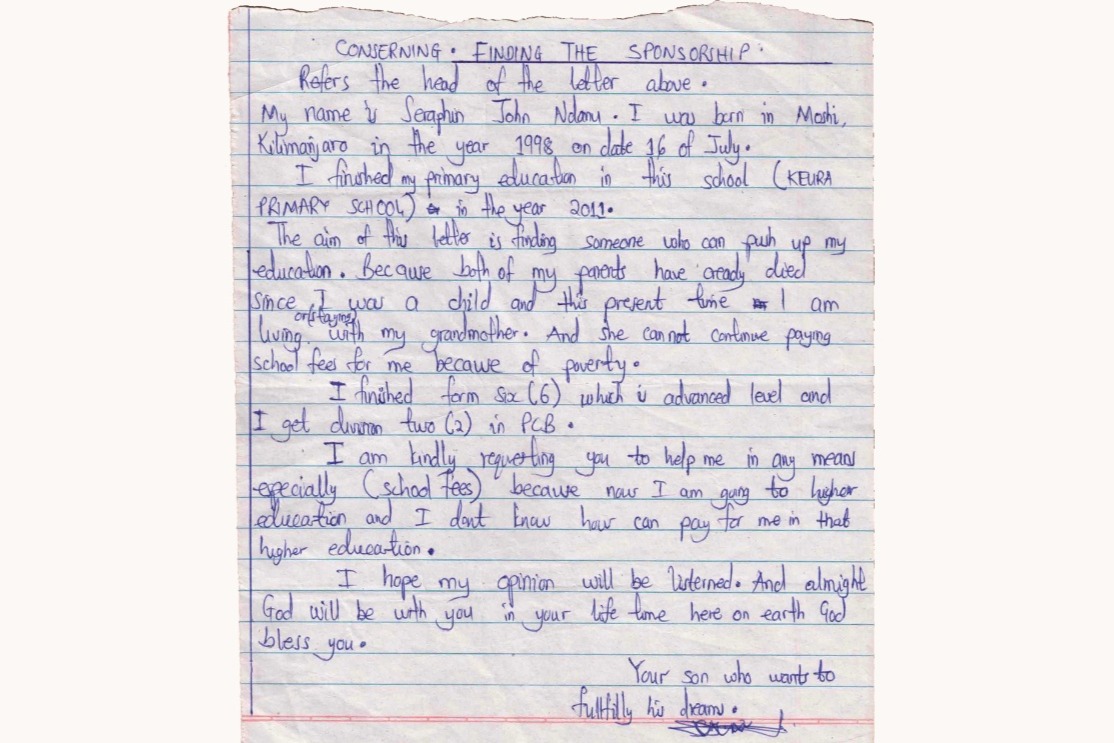 CONSERNING. FINDING THE SPONSORSHIP.
Refers the head of the letter above.
My name is Seraphin John Ndanu. I was born in Moshi,
Kilimanjaro in the year 1998 on date 16 of July.
I finished my primary education in this school (KEURA
PRIMARY SCHOOL) in the year 2011.
The aim of this letter is finding someone who can push up my
education. Because both of my parents have aready died
since I was a child and this present time I am
or(staying)
living with my grandmother. And she cannot continue paying
school fees for me because of poverty.
I finished form six (6) which is advanced level and
I get division two (2) in PCB.
I am kindly requesting you to help me in any means
especially (school fees) because now I am going to higher
education and I dont know how can pay for me in that
higher education.
I hope my opinion will be listerned. And almight
God will be with you in your life time here on earth God
bless you.
Your son who wants to
fullfilly his dreams.